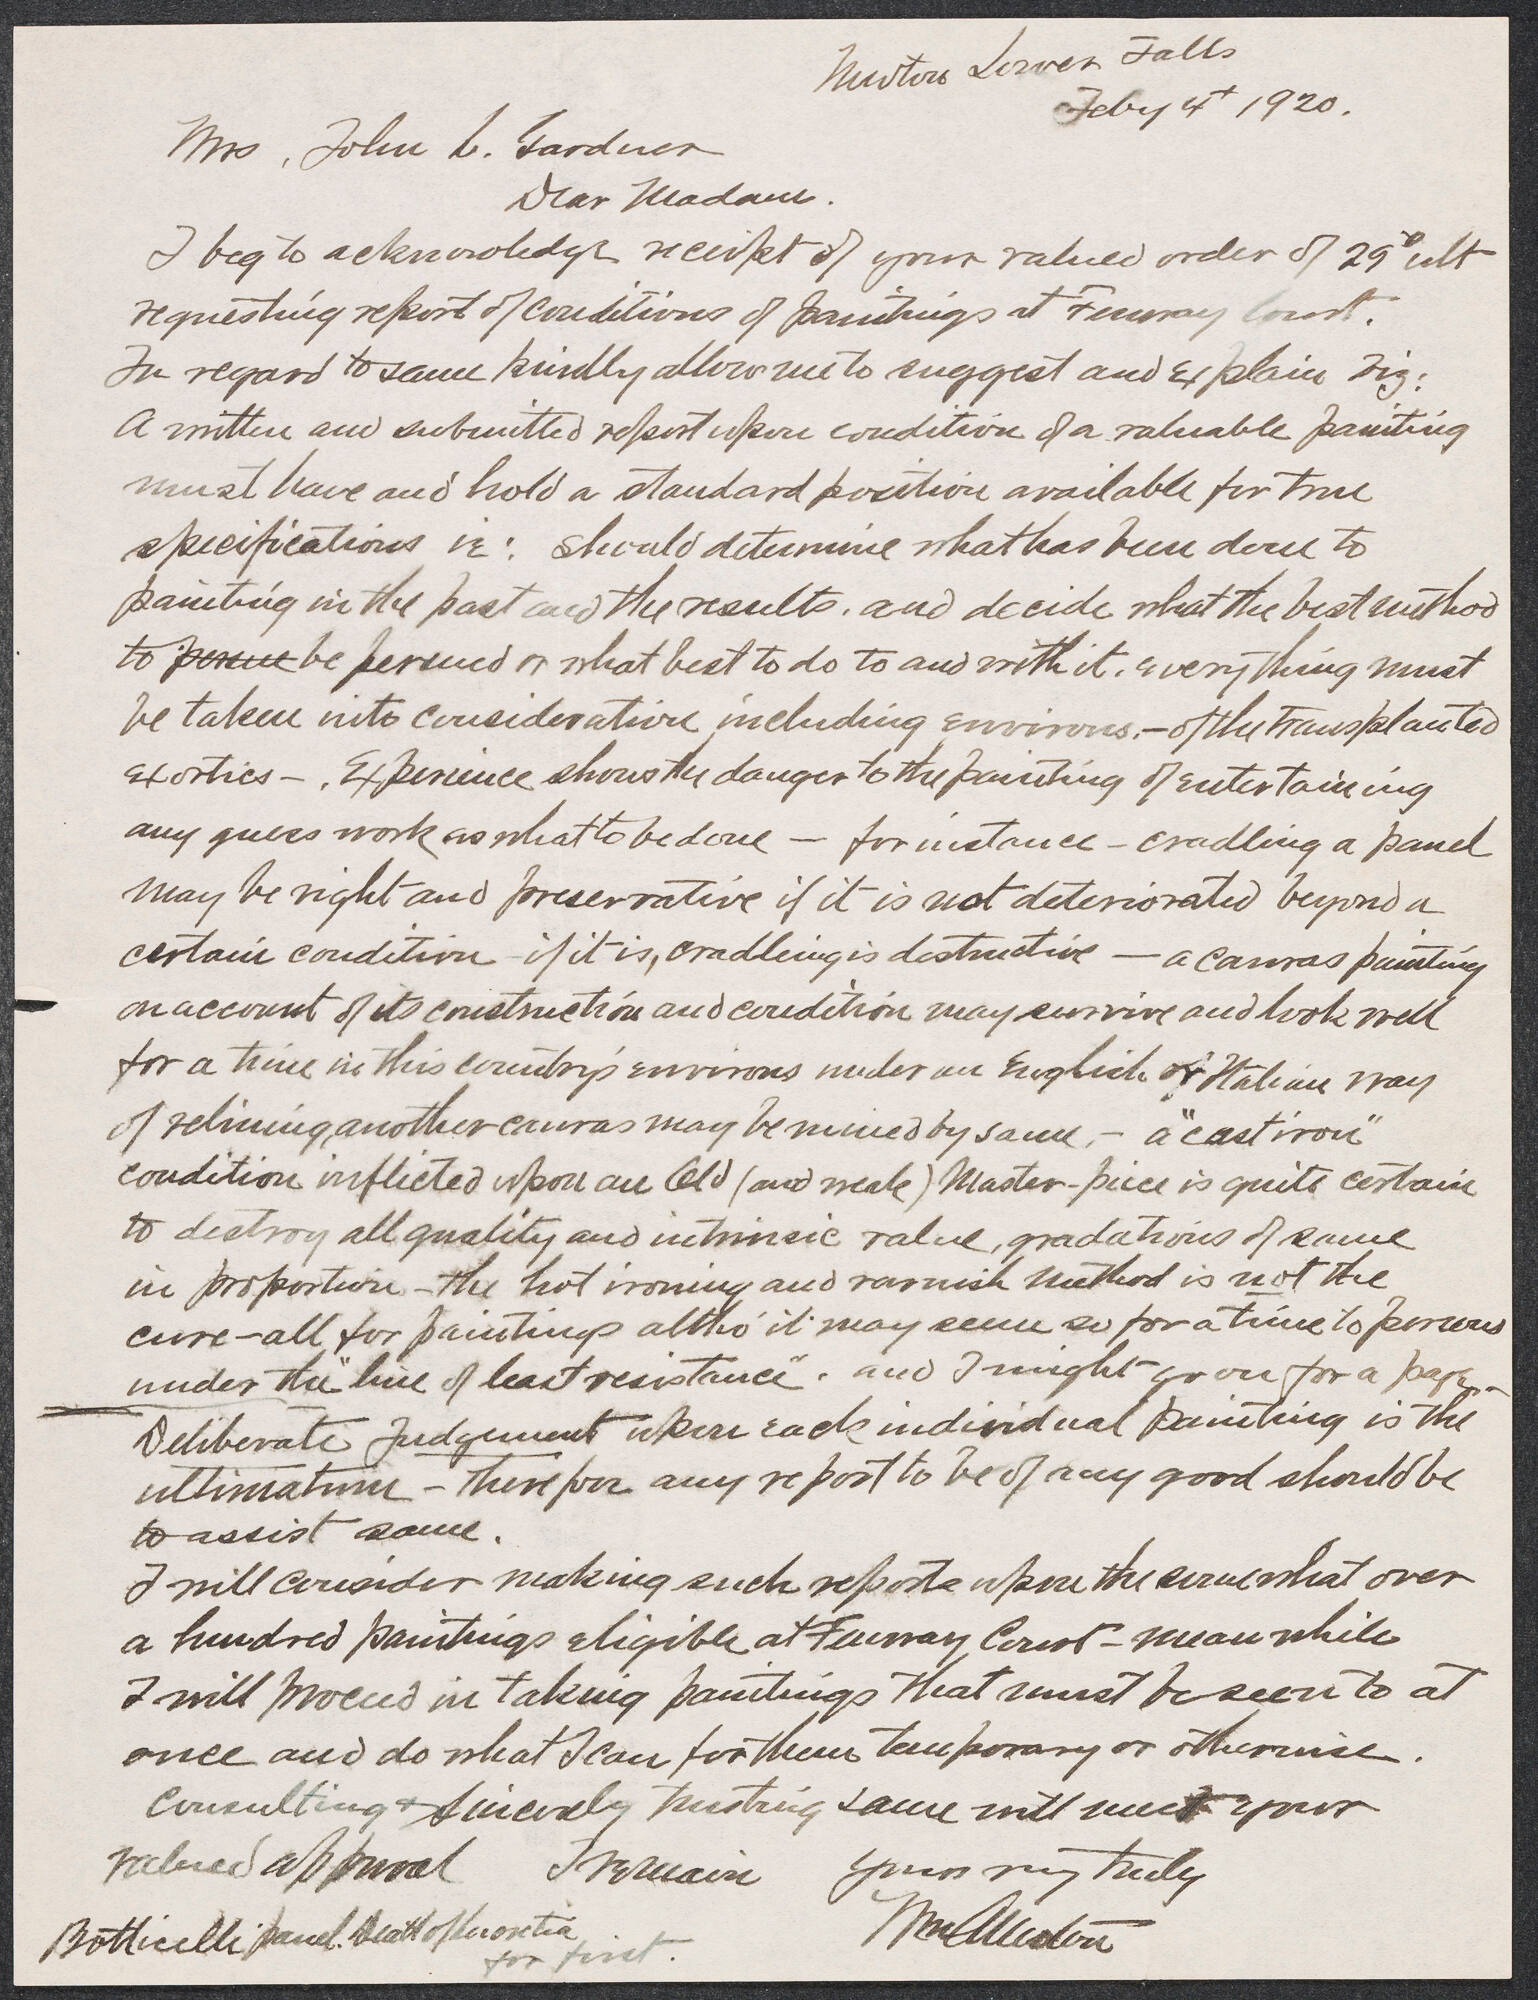 Newton Lower Falls
Feby 4t 1920.
Mrs, John L. Gardner
Dear Madam.
I beg to acknowledge receipt of your valued order of 29th ult
requesting report of conditions of paintings at Fenway Court.
In regard to same kindly allow me to suggest and explain viz:
A written and submitted report upon condition of a valuable painting
must have and hold a standard position available for true
specifications ie: should determine what has been done to
painting in the past and the results. and decide what the best method
to persue be persued or what best to do to and with it. everything must
be taken into consideration including environs.- of the transplanted
exortics - . Experience shows the danger to the painting of entertaining
any guess work as what to be done - for instance - cradling a panel
may be right and preservative if it is not deteriorated beyond a
certain condition - if it is, cradleing is destructive - a canvas painting
on account of its construction and condition may survive and look well
for a time in this country's environs under an English or Italian way
of relining, another canvas may be ruined by same, - a "cast iron"
condition inflicted upon an Old (and weak) Master-piece is quite certain
to destroy all quality and intrinsic value, gradations of same
in proportion - the hot ironing and varnish method is not the
cure-all for paintings altho' it may seem so for a time to persons
under the "line of least resistance". and I might go on for a page -
Deliberate Judgement upon each individual painting is the
ultimatum - therefor any report to be of any good should be
to assist same.
I will consider making such reports upon the somewhat over
a hundred paintings eligible at Fenway Court - mean while
I will proceed in taking paintings that must be seen to at
once and do what I can for them temporary or otherwise.
Consulting & Sincerely trusting same will meet your
valued approval I remain yours very truly
Botticelli panel. Death of Lucretia
for first.